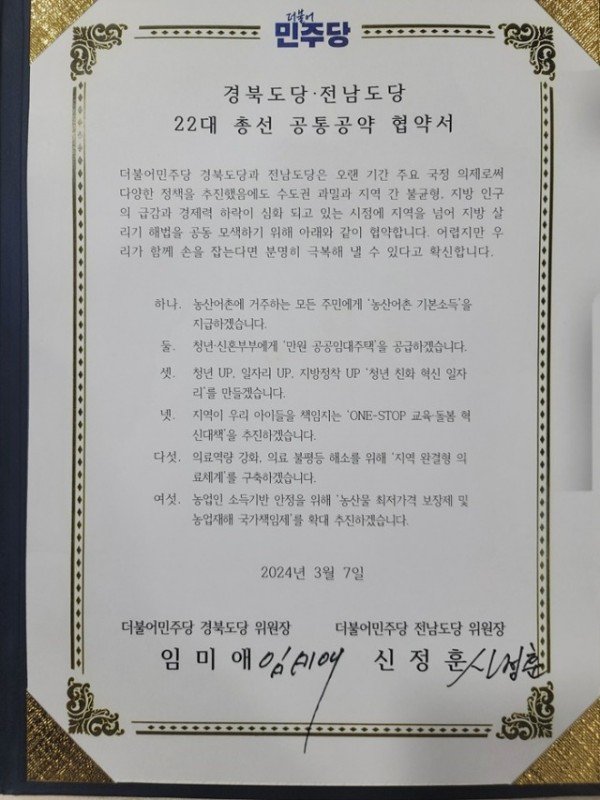 더불어
민주당
경북도당·전남도당
22대 총선 공통공약 협약서
더불어민주당 경북도당과 전남도당은 오랜 기간 주요 국정 의제로써
다양한 정책을 추진했음에도 수도권 과밀과 지역 간 불균형, 지방 인구
의 급감과 경제력 하락이 심화 되고 있는 시점에 지역을 넘어 지방 살
리기 해법을 공동 모색하기 위해 아래와 같이 협약합니다. 어렵지만 우
리가 함께 손을 잡는다면 분명히 극복해 낼 수 있다고 확신합니다.
하나. 농산어촌에 거주하는 모든 주민에게 '농산어촌 기본소득'을
지급하겠습니다.
둘. 청년·신혼부부에게 '만원 공공임대주택'을 공급하겠습니다.
셋. 청년 UP, 일자리 UP, 지방정착 UP '청년 친화 혁신 일자
리'를 만들겠습니다.
넷. 지역이 우리 아이들을 책임지는 'ONE-STOP 교육·돌봄 혁
신대책'을 추진하겠습니다.
다섯. 의료역량 강화, 의료 불평등 해소를 위해 '지역 완결형 의
료체계'를 구축하겠습니다.
여섯. 농업인 소득기반 안정을 위해 '농산물 최저가격 보장제 및
농업재해 국가책임제'를 확대 추진하겠습니다.
2024년 3월 7일
더불어민주당 경북도당 위원장 더불어민주당 전남도당 위원장
임미애 임미애 신정훈 신정훈